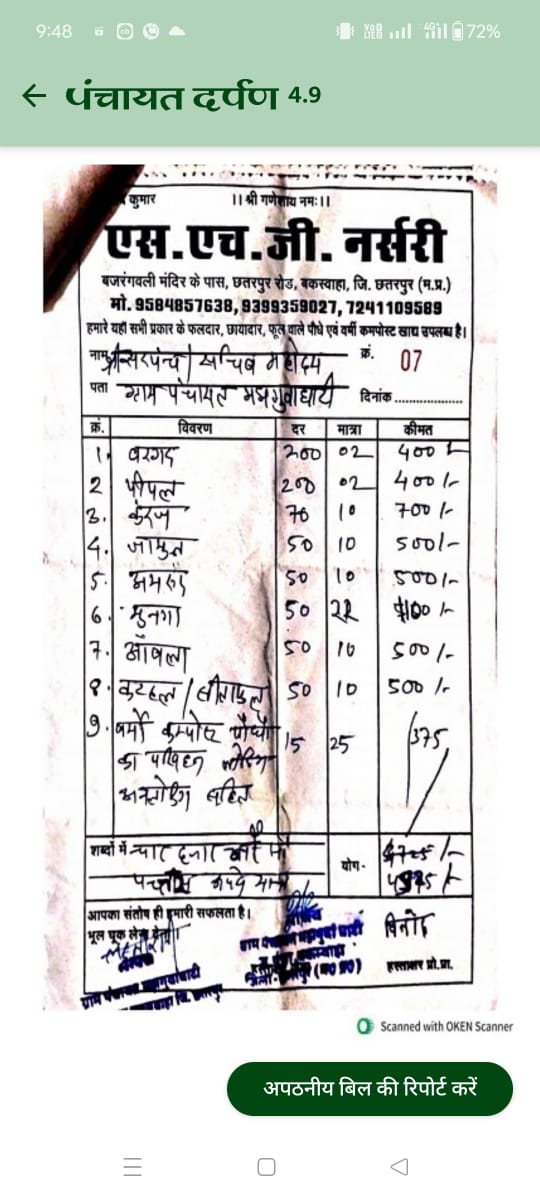 9:48
VoD LTED 4G+ 72%
← पंचायत दर्पण 4.9
कुमार ।। श्री गणेशाय नमः।।
एस.एच.जी. नर्सरी
बजरंगवली मंदिर के पास, छतरपुर रोड, बकस्वाहा, जि. छतरपुर (म.प्र.)
मो. 9584857638, 9399359027, 7241109589
हमारे यहाँ सभी प्रकार के फलदार, छायादार, फूल वाले पौधे एवं वर्मी कमपोस्ट खाद्य उपलब्ध है।
नाम श्री सरपंच / सचिव महोदय क्रं. 07
पता ग्राम पंचायत मझगुवांघाटी दिनांक ..................
क्रं. विवरण दर मात्रा कीमत
1. बरगद 200 02 400 /-
2 पीपल 200 02 400 /-
3. करंज 70 10 700 /-
4. जामुन 50 10 500/-
5. अमरूद 50 10 500/-
6. मुनगा 50 22 1100 /-
7. आँवला 50 10 500 /-
8. कटहल / सीताफल 50 10 500 /-
9. वर्मी कम्पोस्ट पौधों 15 25 375
का परिवहन लोडिंग
अनलोडिंग सहित
शब्दों में चार हजार योग- 4725 /-
पच्चीस रुपये मात्र 4975 /-
आपका संतोष ही हमारी सफलता है।
भूल चूक लेना देना। विनोद
हस्ताक्षर प्रो.प्रा.
ग्राम पंचायत मझगुवां घाटी
Scanned with OKEN Scanner
अपठनीय बिल की रिपोर्ट करें